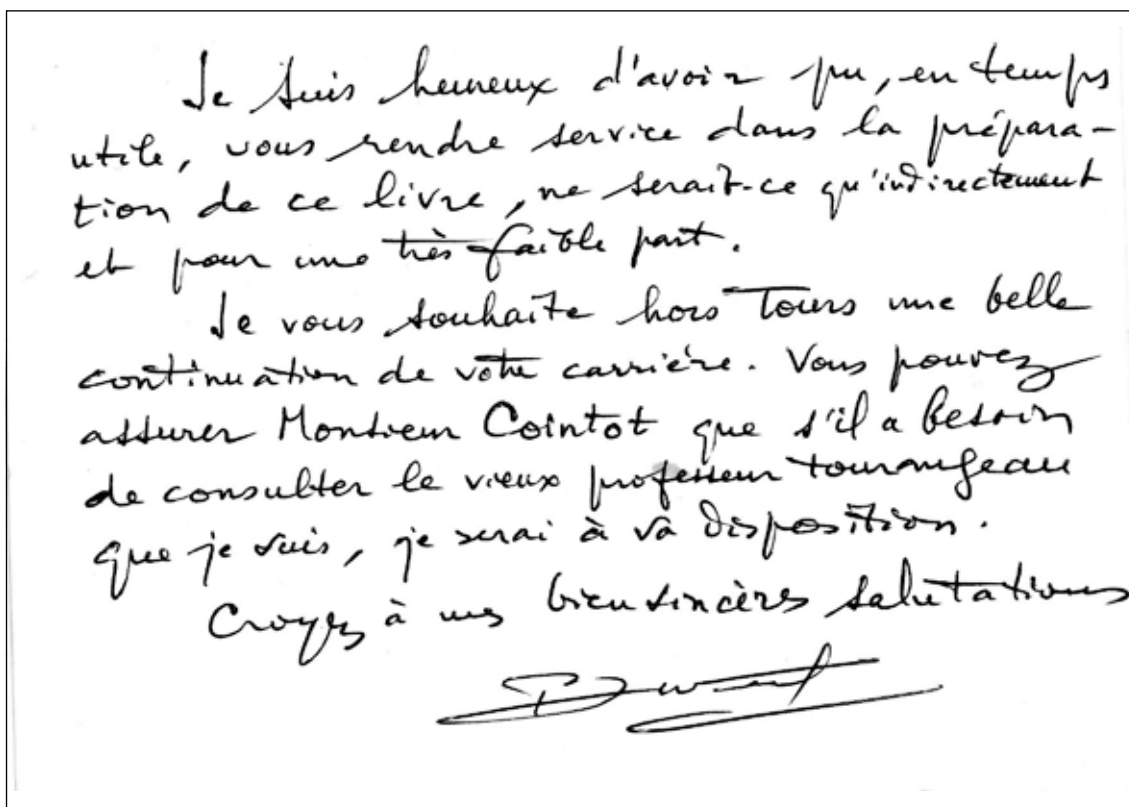 Je suis heureux d'avoir pu, en temps
utile, vous rendre service dans la prépara-
tion de ce livre, ne serait-ce qu'indirectement
et pour une très faible part.
Je vous souhaite hors Tours une belle
continuation de votre carrière. Vous pouvez
assurer Monsieur Cointot que s'il a besoin
de consulter le vieux professeur tourangeau
que je suis, je serai à sa disposition.
Croyez à mes bien sincères salutations